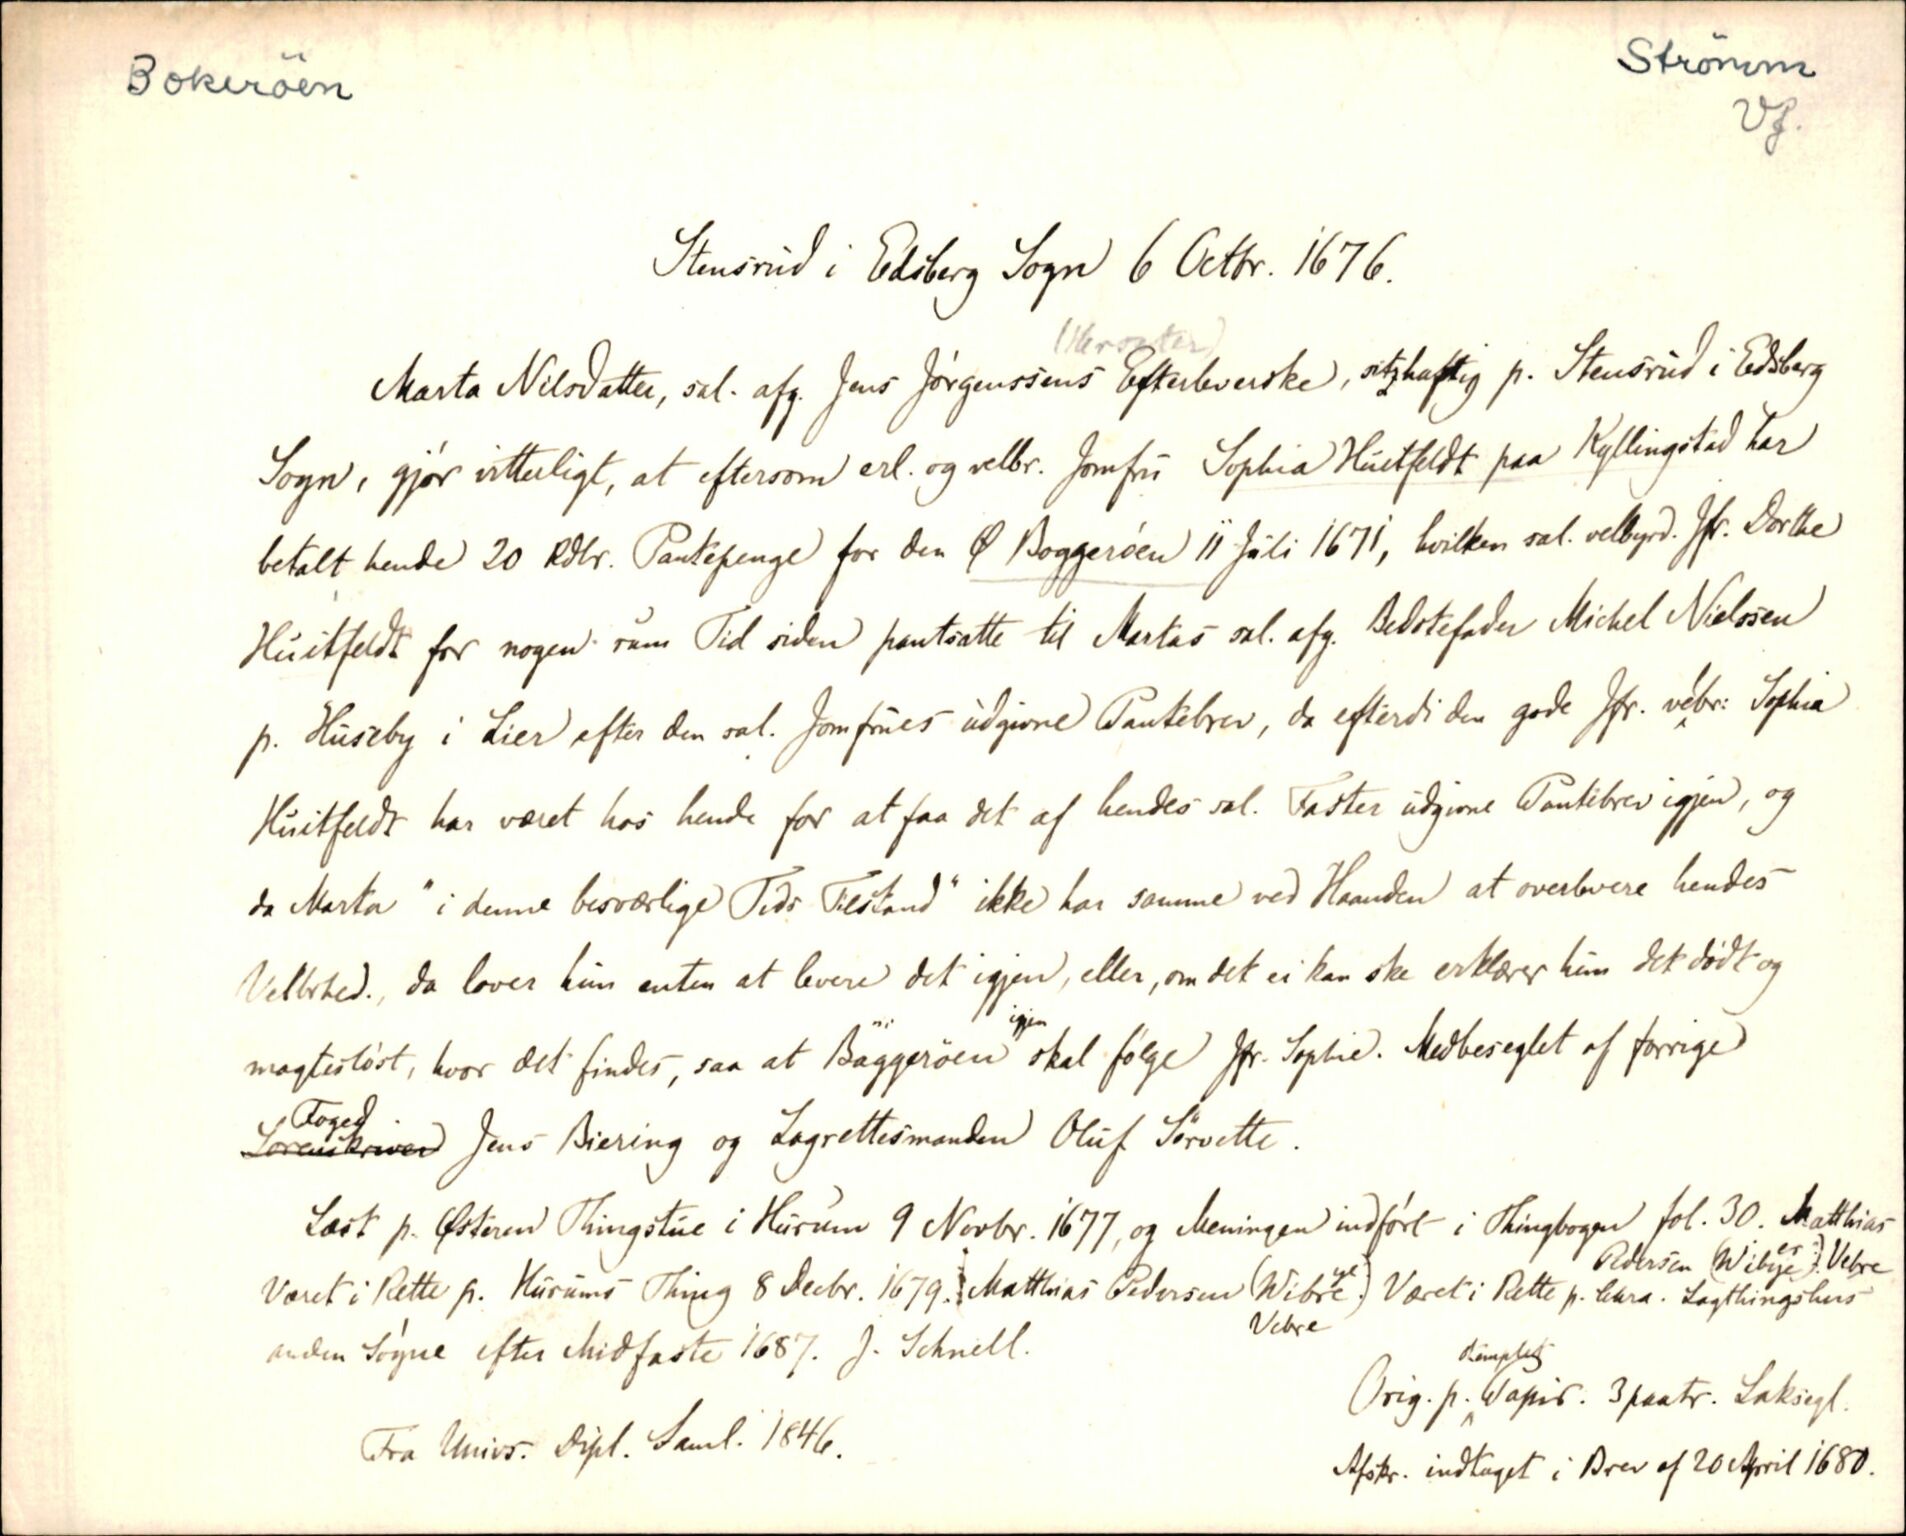 Bokeröen
Strömm
Vf.
Stensrud i Edsberg Sogn 6 Octbr. 1676.
Marta Nilsdatter, sal. afg. Jens Jörgenssens Efterleverske, sitzhaftig p. Stensrud i Edsberg
Sogn, gjör vitterligt, at eftersom erl. og velbr. Jomfru Sophia Huitfeldt paa Kyllingstad har
betalt hende 20 Rdlr. Pantepenge for den Ø Boggeröen 11 Juli 1671, hvilken sal. velbyrd. Jfr. Dorthe
Huitfeldt for nogen rum Tid siden pantsatte til Martas sal. afg. Bedstefader Michel Nielssen
p. Huseby i Lier efter den sal. Jomfrues udgivne Pantebrev, da efterdi den gode Jfr. velbr: Sophia
Huitfeldt har været hos hende for at faa det af hendes sal. Faster udgivne Pantebrev igjen, og
da Marta "i denne besværlige Tids Tilstand" ikke har samme ved Haanden at overlevere hendes
Velbrhed., da lover hun enten at levere det igjen, eller, om det ei kan ske erklærer hun det dödt og
magteslöst, hvor det findes, saa at Baggeröen igjen skal fölge Jfr. Sophie. Medbeseglet af forrige
Foged
Sorenskriver Jens Biering og Lagrettesmanden Oluf Sörvette.
Læst p. Østeren Thingstue i Hurum 9 Novbr. 1677, og Meningen indfört i Thingbogen fol. 30. Matthias
Pedersen (Wibye) Vebre
Været i Rette p. Hurums Thing 8 Decbr. 1679. Matthias Pedersen (Wibye) Været i Rette p. Lagthingshus
Vebre
anden Sögne efter Midfaste 1687. J. Schnell.
Orig. p. stemplet Papir. 3 paatr. Laksegl.
Fra Univs. Dipl. Saml. 1846.
Afskr. indtaget i Brev af 20 April 1680.